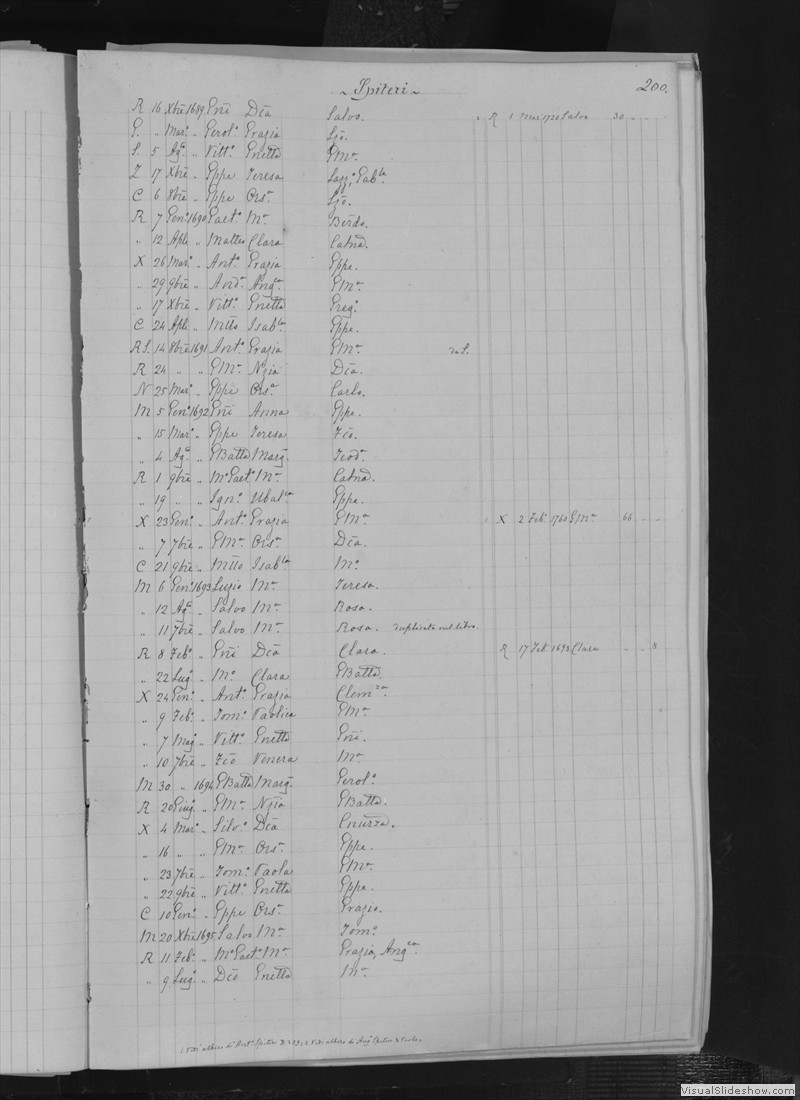 ~Spiteri~ 200.
R 16 Xbre 1689 Enri Dca Salvo. R 1 Mar 1720 Salvo 30
G. " Mar.o " Gerol.o Grazia Gio.
S. 5 Ag.o " Vitt.o Gnetta GMa.
Z 17 Xbre " Gppe Teresa Lazz.o, Gab.la
C 6 8bre " Gppe Ors.a Gio.
R 7 Gen.o 1690 Gaet.o M.a Berdo.
" 12 Aple " Matteo Clara Catna.
X 26 Mar.o " Ant.o Grazia Gppe.
" 29 9bre " And.a Ang.ca GMa.
" 17 Xbre " Vitt.o Gnetta Greg.o
C 24 Aple " Mtto Isab.la Gppe.
R S. 14 8bre 1691 Ant.o Grazia GMa. in S.
R 24 " " GMa. Nzia Dca.
N 25 Mar.o " Gppe Ors.a Carlo.
M 5 Gen.o 1692 Enri Anna Gppe.
" 15 Mar.o " Gppe Teresa Fco.
" 4 Ag.o " GBatta Marg. Teod.a
R 1 9bre " M.o Gaet.o M.a Catna.
" 19 " " Ign.o Ubal.ca Gppe.
X 23 Gen.o " Ant.o Grazia GMa. X 2 Feb.o 1760 GMa. 66
" 7 7bre " GMa. Ors.a Dca.
C 21 9bre " Mtto Isab.la M.o
M 6 Gen.o 1693 Luzio M.a Teresa.
" 12 Ag.o " Salvo M.a Rosa.
" 11 7bre " Salvo M.a Rosa. duplicato nel libro.
R 8 Feb.o " Enri Dca Clara. R 17 Feb. 1693 Clara 8
" 22 Lug.o " M.o Clara GBatta.
X 24 Gen.o " Ant.o Grazia Clem.za
" 9 Feb.o " Tom.o Paolica GMa.
" 7 Mag " Vitt.o Gnetta Enri.
" 10 7bre " Fco Venera M.a
M 30 " 1694 GBatta Marg. Gerol.o
R 20 Giug. " GMa. Nzia GBatta.
X 4 Mar.o " Silv.o Dca
" 16 " " GMa. Ors.a Gppe.
" 23 7bre " Tom.o Paola GMa.
" 22 9bre " Vitt.o Gnetta Gppe.
C 10 Gen.o " Gppe Ors.a Grazio.
M 20 Xbre 1695 Salvo M.a Tom.o
R 11 Feb.o " M.o Gaet.o M.a Grazia, Ang.ca
" 9 Lug.o " Dco Gnetta M.a
VisualSlideshow.com